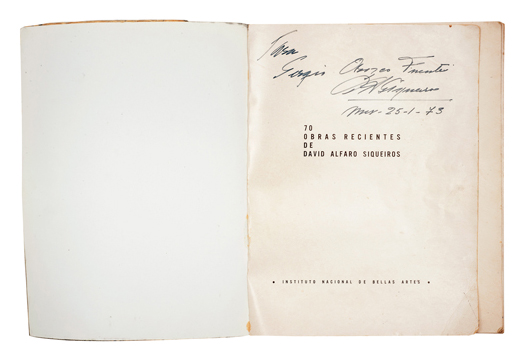 Para
Sergio
Siqueiros
25-1-73
70
OBRAS RECIENTES
DE
DAVID ALFARO SIQUEIROS
• INSTITUTO NACIONAL DE BELLAS ARTES •